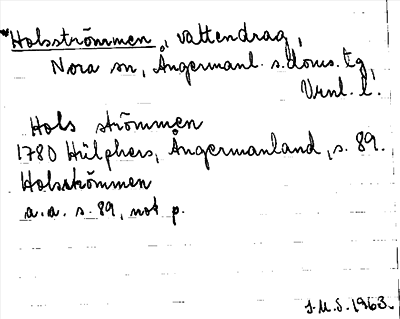 *Holsströmmen, vattendrag,
Nora sn, Ångermanl. s. doms. tg,
Vrnl. l.
Hols strömmen
1780 Hülphers, Ångermanland, s. 89.
Holsströmmen
a.a. s. 89, not p.
J.M.S. 1963.